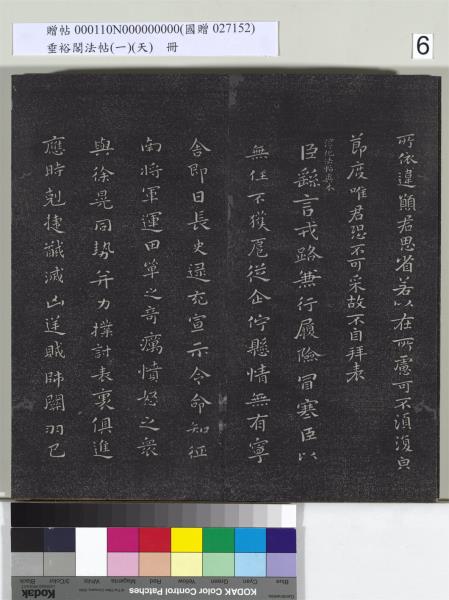 贈帖 000110N000000000(國贈 027152)
垂裕閣法帖(一)(天)　冊
6
所依違願君思省若以在所慮可不須復白
節度唯君恐不可采故不自拜表
淳化法帖真本
臣繇言戎路兼行履險冒寒臣以
無任不獲扈從企佇懸情無有寧
舍即日長史逯充宣示令命知征
南將軍運田單之奇厲憤怒之衆
與徐晃同勢并力撲討表裏俱進
應時剋捷馘滅凶逆賊帥關羽已
Kodak
KODAK Color Control Patches
Blue
Cyan
Green
Yellow
Red
Magenta
White
3/Color
Black